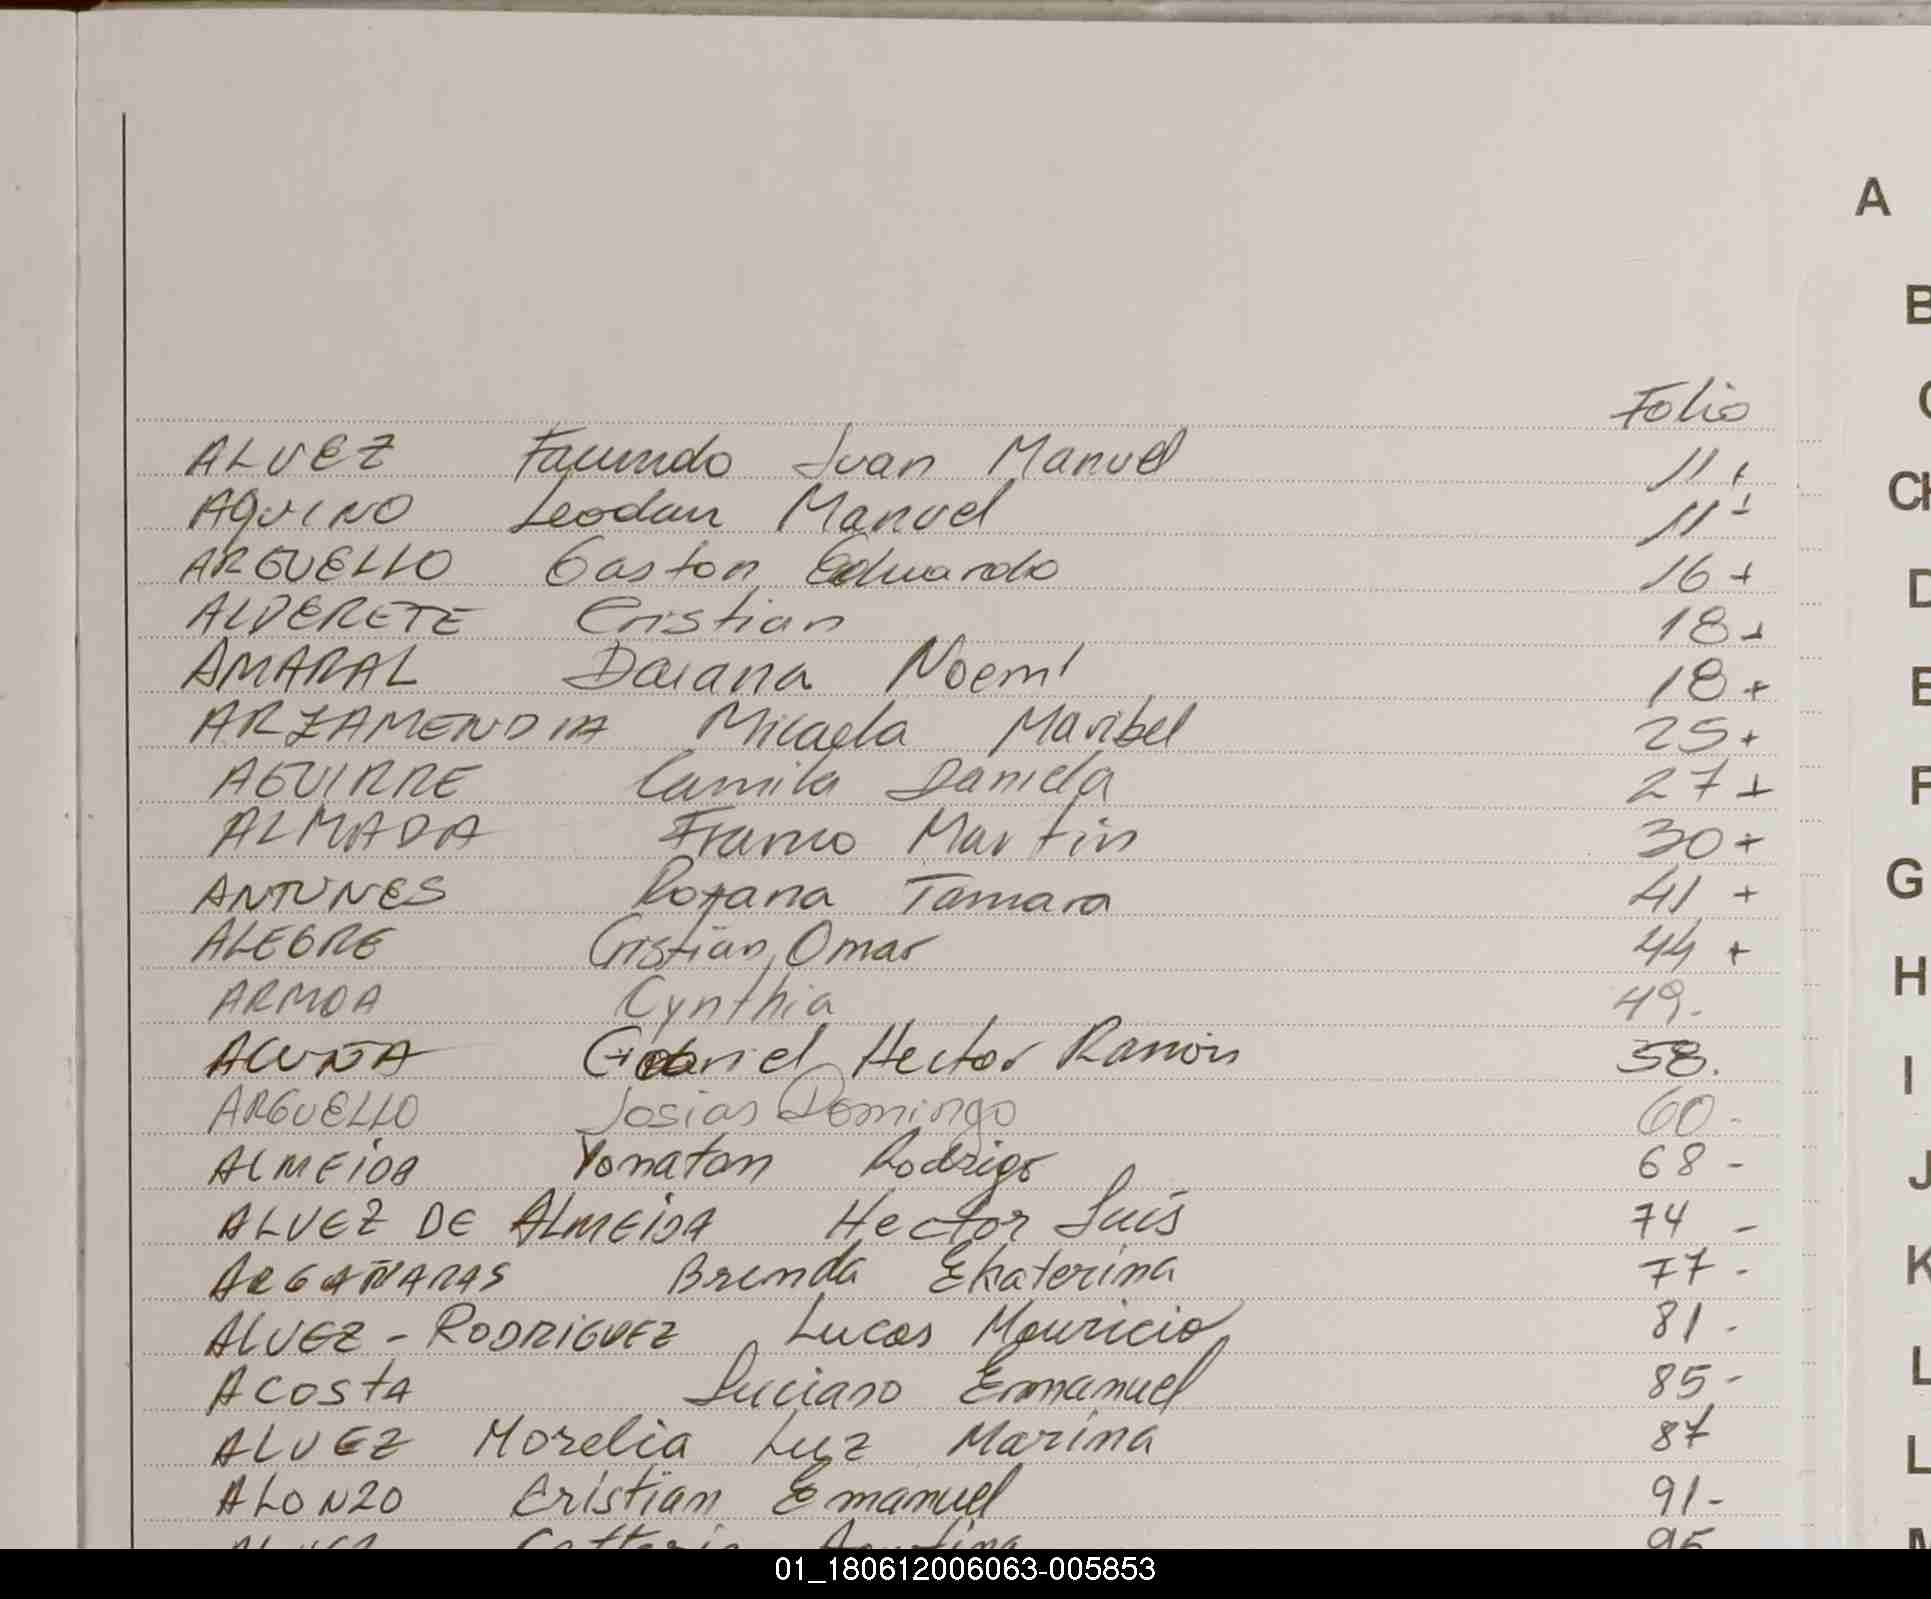 A
B
Folio
ALVEZ Facundo Juan Manuel 11 +
CH
AQUINO Leodan Manuel 11 +
ARGUELLO Gaston Eduardo 16 +
D
ALDERETE Cristian 18 +
AMARAL Daiana Noemí 18 +
E
ARZAMENDIA Micaela Maribel 25 +
AGUIRRE Camila Daniela 27 +
F
ALMADA Franco Martin 30 +
ANTUNES Roxana Tamara 41 +
G
ALEGRE Cristian Omar 44 +
H
ARMOA Cynthia 49.
ACUÑA Gabriel Hector Ramón 58.
I
ARGUELLO Josias Domingo 60 -
ALMEIDA Yonatan Rodrigo 68 -
J
ALVEZ DE ALMEIDA Hector Luis 74 -
ARGAÑARAS Brenda Ekaterina 77 -
K
ALVEZ - RODRIGUEZ Lucas Mauricio 81 -
ACOSTA Luciano Emmanuel 85 -
L
ALVEZ Morelia Luz Marina 87
ALONZO Cristian Emanuel 91 -
01_180612006063-005853